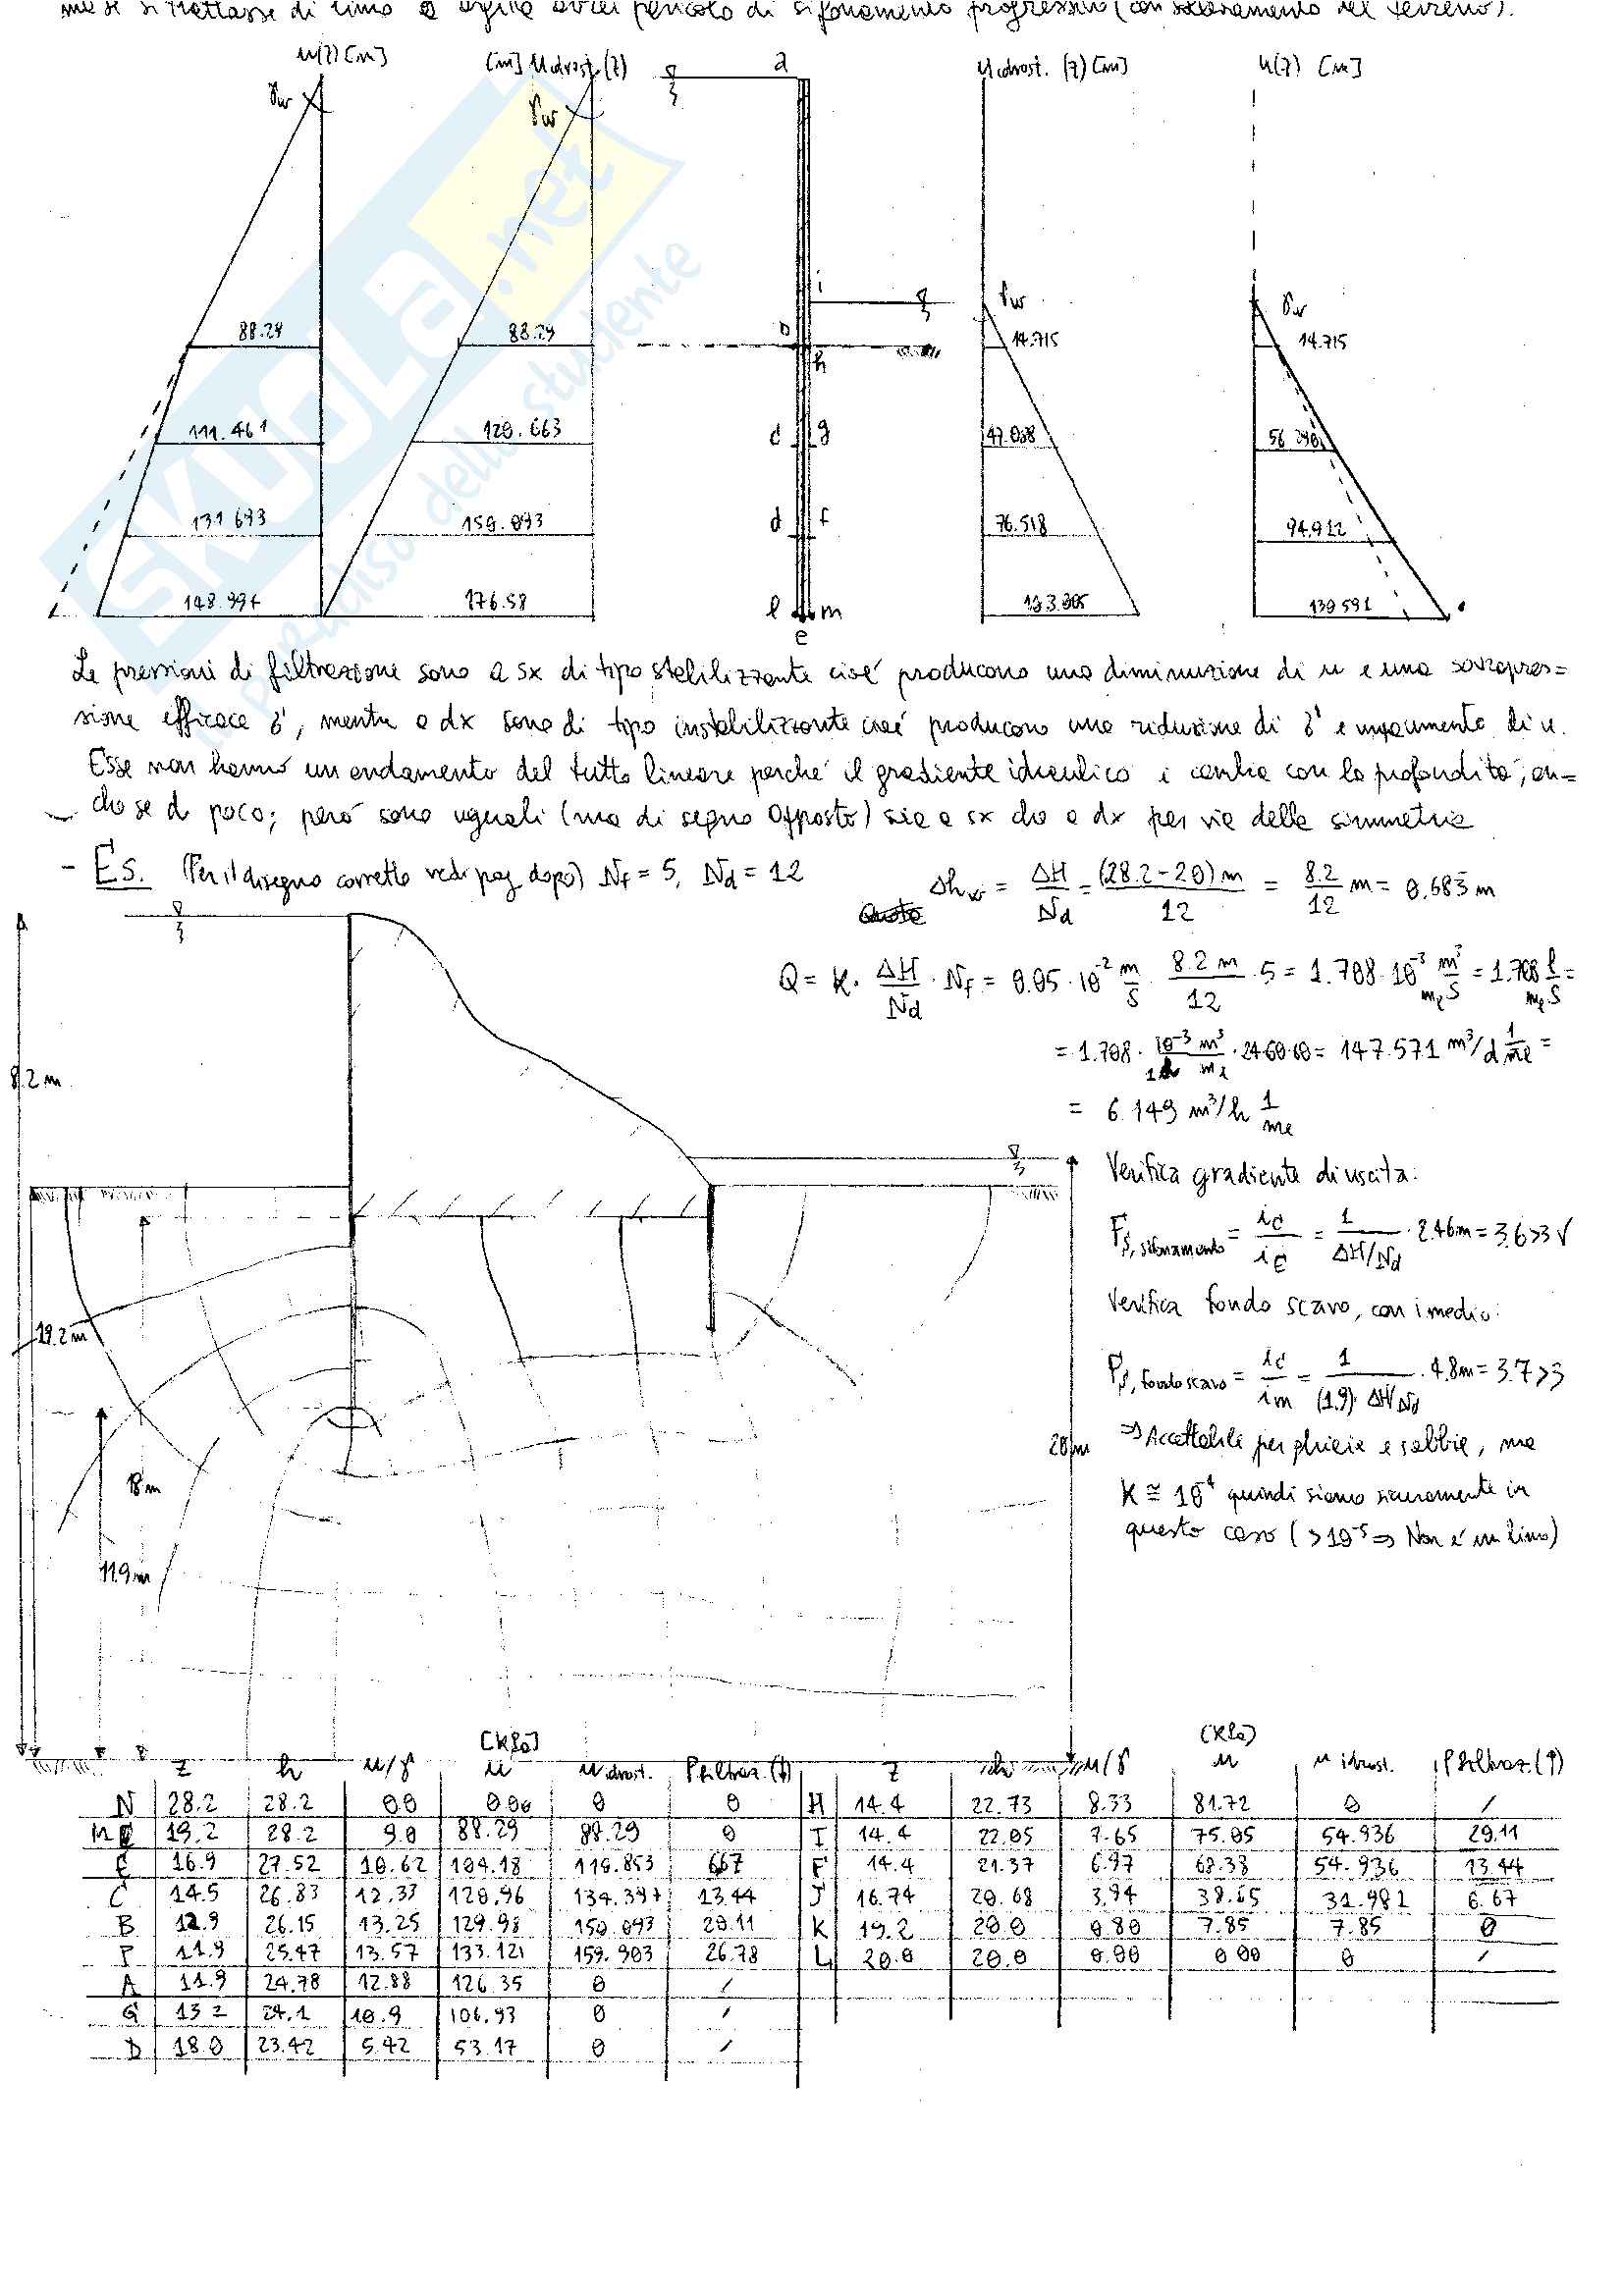 me se si trattasse di limo o argilla avrei pericolo di sifonamento progressivo (con sollevamento del terreno).
u(z) [m]
[m] u idrost. (z)
a
u idrost. (z) [m]
u(z) [m]
γw
γw
i
γw
γw
88.29
88.29
b
h
14.715
14.715
111.461
120.663
c
g
47.088
56.290
131.693
150.093
d
f
76.518
94.912
148.994
176.58
l
m
e
139.591
Le pressioni di filtrazione sono a sx di tipo stabilizzante cioè producono una diminuzione di u e una sovrapres=
sione efficace σ', mentre a dx sono di tipo instabilizzante cioè producono una riduzione di σ' e un aumento di u.
Esse non hanno un andamento del tutto lineare perché il gradiente idraulico i cambia con la profondità, an=
che se di poco; però sono uguali (ma di segno opposto) sia a sx che a dx per via della simmetria
- Es. (Per il disegno corretto vedi pag dopo) Nf = 5, Nd = 12
Δhw = ΔH/Nd = (28.2-20)m/12 = 8.2/12 m = 0.683 m
Q = K · ΔH/Nd · Nf = 0.05 · 10^-2 m/s · 8.2 m/12 · 5 = 1.708 · 10^-3 m³/mℓ s = 1.708 ℓ/mℓ s =
= 1.708 · 10^-3 m³/mℓ · 24·60·60 = 147.571 m³/d 1/mℓ =
= 6.149 m³/h 1/mℓ
8.2 m
Verifica gradiente di uscita:
Fs, sifonamento = ic/iE = 1/ΔH/Nd · 2.46m = 3.6>3 √
Verifica fondo scavo, con i medio:
19.2m
Fs, fondo scavo = ic/im = 1/(1.9)·ΔH/Nd · 4.8m = 3.7>3
20m
⇒ Accettabili per ghiaia e sabbia, ma
18m
K ≅ 10^-4 quindi siamo sicuramente in
questo caso (>10^-5 ⇒ Non è un limo)
11.9m
z h u/γ [KPa] u u idrost. P filtraz. (↓)
N 28.2 28.2 0.0 0.00 0 0
M 19.2 28.2 9.0 88.29 88.29 0
E 16.9 27.52 10.62 104.18 110.853 6.67
C 14.5 26.83 12.33 120.96 134.397 13.44
B 12.9 26.15 13.25 129.98 150.093 20.11
P 11.9 25.47 13.57 133.121 159.903 26.78
A 11.9 24.78 12.88 126.35 0 /
G 13.2 24.1 10.9 106.93 0 /
D 18.0 23.42 5.42 53.17 0 /
z h u/γ (KPa) u u idrost. P filtraz. (↑)
H 14.4 22.73 8.33 81.72 0 /
I 14.4 22.05 7.65 75.05 54.936 20.11
F 14.4 21.37 6.97 68.38 54.936 13.44
J 16.74 20.68 3.94 38.65 31.981 6.67
K 19.2 20.0 0.80 7.85 7.85 0
L 20.0 20.0 0.00 0.00 0 /
SKUOLA.net
paradiso dello studente